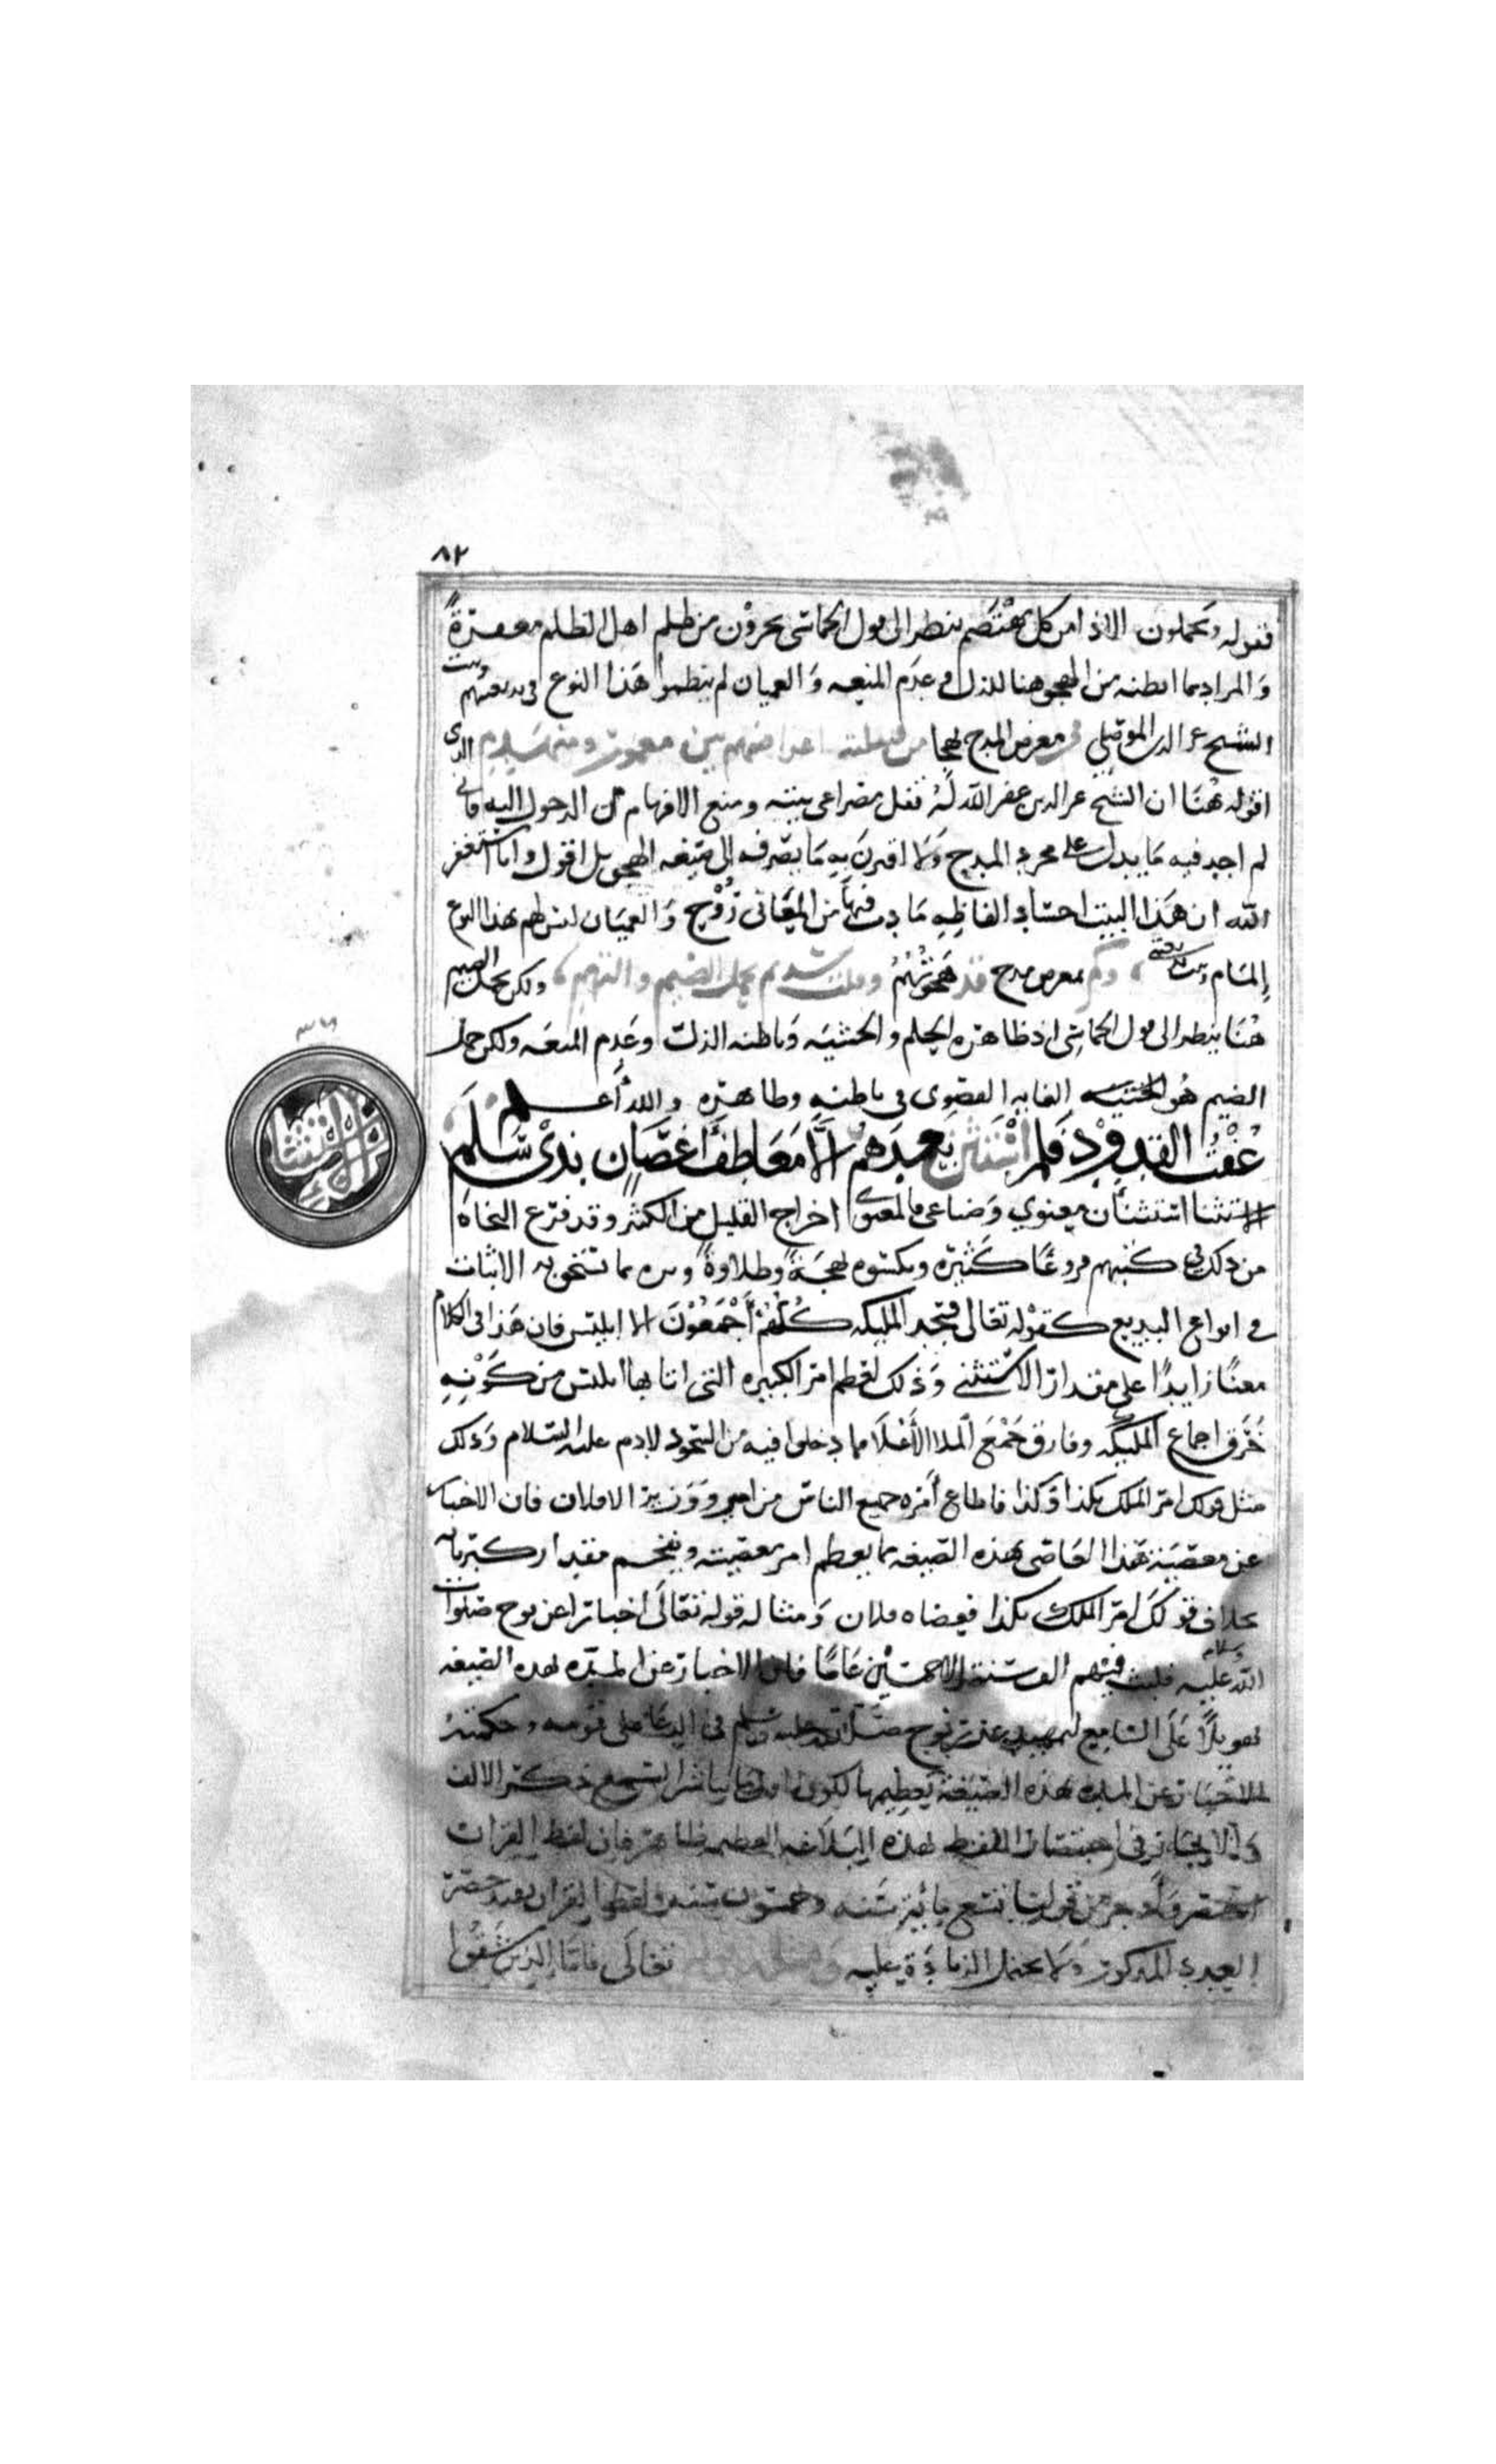 ٨٢
فقوله ويحملون الاذا من كل مهتضم ينظر الى قول الحماسي يجزون من ظلم اهل الظلم مغفرة
والمراد بما ابطنه من الهجو هنا الذل في عدم المنعه والعميان لم ينظموا هذا النوع في بديعيتهم وبيت
الشيخ عز الدين الموصلي في معرض المدح لهجا من قبيلته اعراضهم بين معمور ومنهدم الذي
اقوله هنا ان الشيخ عز الدين غفر الله له نقل مصراعي بيته ومنع الافهام من الدخول اليه فاني
لم اجد فيه ما يدل على مجرد المدح ولا اقترن به ما يصرفه الى صيغه الهجو بل اقول وانا استغفر
الله ان هذا البيت اجساد الفاظه ما دب فيها من المعاني روح والعميان ليس لهم بهذا النوع
المام وبيت بديعيتي وكم بمعرض مدح قد هجوتهم وقلت سدتم بحمل الضيم والتهم ولكن تحمل الضيم
هنا ينظر الى قول الحماسي اذ ظاهره الحلم والخشيه وباطنه الذل وعدم المنعه ولكن حمل
الضيم هو الغايه القصوى في باطنه وظاهره والله اعلم
عفت القدود فلم استثن بعدهم الا معاطف اغصان بذي سلم
الاستثنا استثنأان معنوي وصناعي فالمعنوي اخراج القليل من الكثير وقد فرع النحاه
من ذلك في كتبهم فروعا كثيره ويكسوه بهجة وطلاوة مما تستحق به الاثبات
في انواع البديع كقوله تعالى فسجد المليكه كلهم اجمعون الا ابليس فان هذا في الكلام
معنا زايدا على مقدار الاستثنى وذلك لعظم امر الكبيره التي اتا بها ابليس من كونه
خرق اجماع المليكه وفارق جمع الملا الأعلا مما دخلوا فيه من السجود لادم عليه السلام وذلك
مثل قولك امر الملك بكذا وكذا فاطاع أمره جميع الناس من امير ووزير الا فلان فان الاخبار
عن معصية هذا العاصي بهذه الصيغه مما يعظم امر معصيته ويفخم مقدار كبريائه
بخلاف قولك امر الملك بكذا فعصاه فلان ومثاله قوله تعالى اخبارا عن نوح صلوات
الله عليه وسلامه فلبث فيهم الف سنة الا خمسين عاما فان الاخبار عن المده بهذه الصيغه
تهويلا على السامع ليمهد عذر نوح صلى الله عليه وسلم في الدعا على قومه وحكمة
الاخبار عن المده بهذه الصيغة تعظيمها لكون اول ما يباشر السمع ذكر الالف
والايجاز في اختصار اللفظ بهذه البلاغه العظيمه ظاهر فان لفظ القران
اختصر واوجز من قولنا تسع مايه سنه وخمسون سنه ولفظ القران يفيد حصر
العدد المذكور ولا يحتمل الزيادة عليه تعالى فاما الذين شقوا